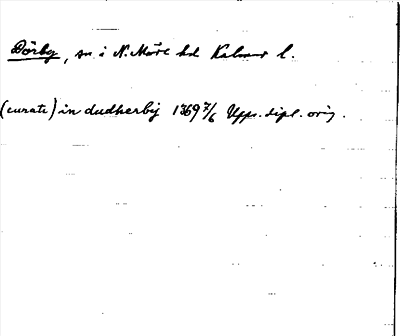 Dörby, sn i N. Möre hd Kalmar l.
(curati) in dudherbij 1369 7/6 Upps. dipl. orig.